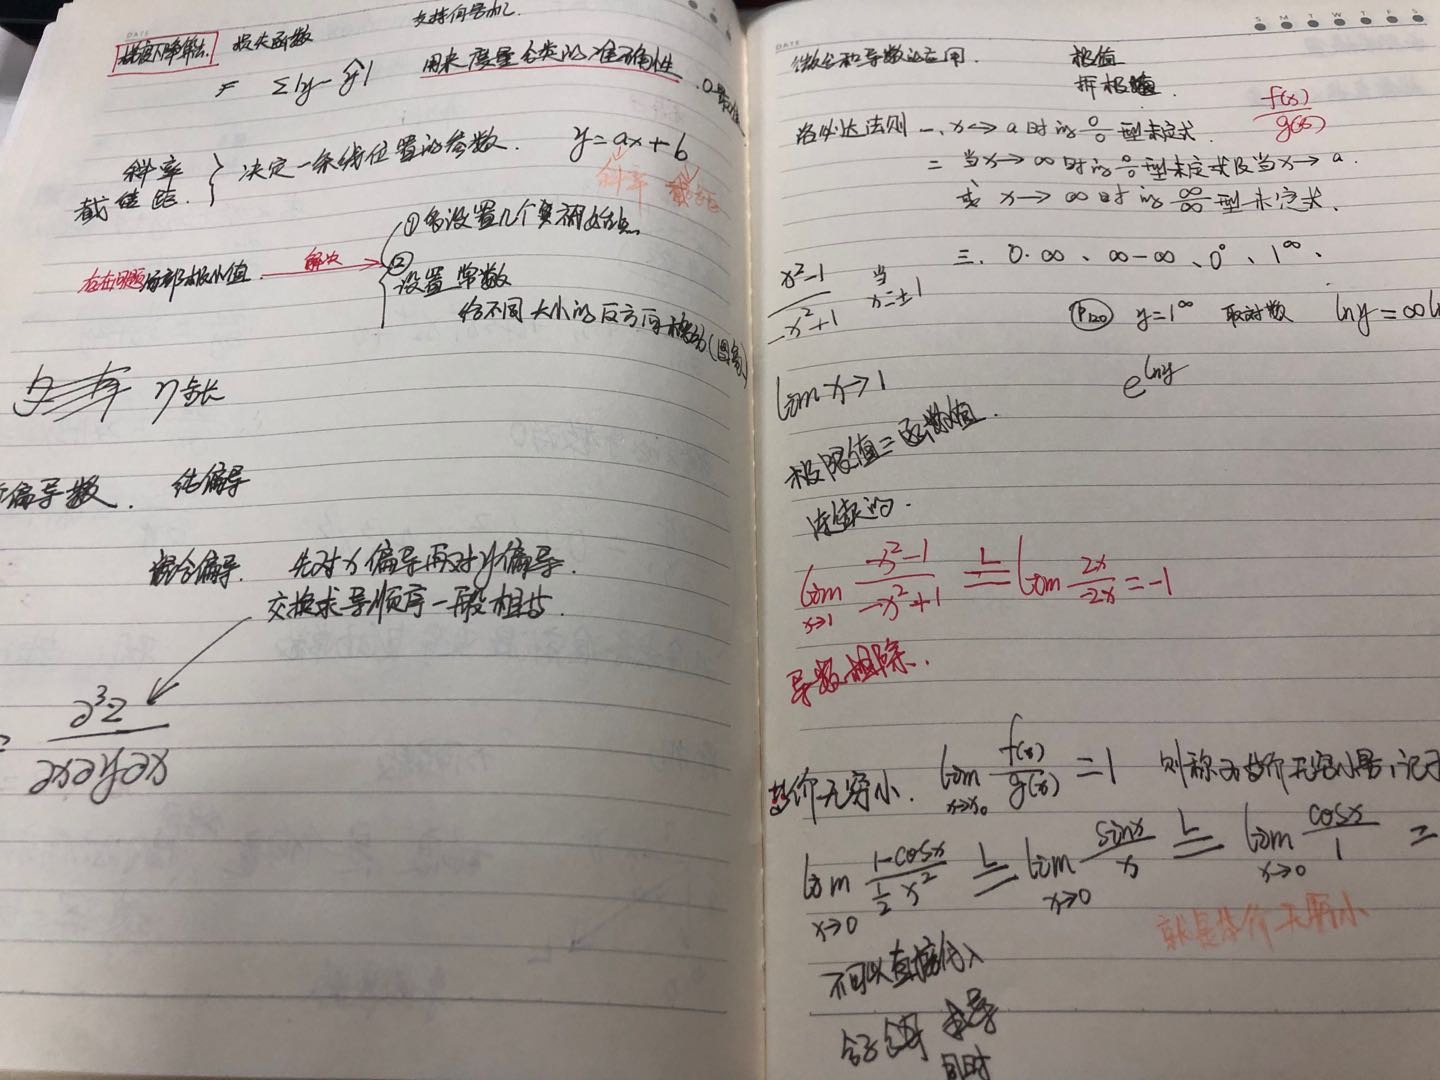 支持向量机
梯度下降算法. 损失函数
= Σ|y-ŷ| 用来度量分类的准确性.
斜率
截距. } 决定一条线位置的参数. y=ax+b
斜率 截距
存在问题局部极小值. 解决
① 多设置几个
② 设置常数
给不同大小的反方向移动(图象)
η 步长
偏导数. 纯偏导
混合偏导. 先对x偏导再对y偏导.
交换求导顺序一般相等.
∂³z
∂x∂y∂x
DATE
S M T W T F S
微分和导数的应用. 极值
拆极
洛必达法则 一. x→a时的0/0型未定式. f(x)/g(x)
二 当x→∞时的0/0型未定式及当x→a.
或 x→∞时的∞/∞型未定式.
三. 0·∞、∞-∞、0⁰、1^∞、
x²-1/-x²+1 当x=±1
P120 y=1^∞ 取对数 lny=∞ln
lim x→1 e^lny
极限值=函数值.
连续的.
lim x→1 x²-1/-x²+1 =L= lim 2x/-2x=-1
导数相除.
等价无穷小. lim x→x₀ f(x)/g(x)=1 则称为等价无穷小量,记为
lim x→0 1-cosx/½x² =L= lim x→0 sinx/x =L= lim x→0 cosx/1 =
就是等价无穷小
不可以直接代入
分子分母 求导
同时